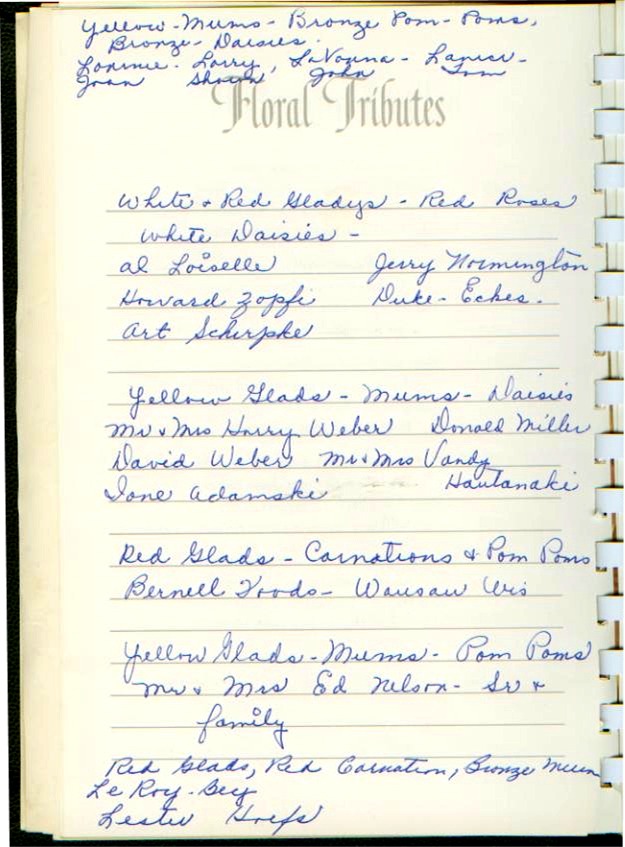 Yellow - Mums - Bronze Pom - Poms,
Bronze - Daisies.
Lonnie - Larry, LaVonna - Lanice -
Joan Shawn John Tom
Floral Tributes
White & Red Gladys - Red Roses
White Daisies -
Al Loiselle Jerry Normington
Howard Zopfi Duke - Eckes.
Art Scherpke
Yellow Glads - Mums - Daisies
Mr & Mrs Harry Weber Donald Miller
David Weber Mr & Mrs Vandy
Ione Adamski Hautanaki
Red Glads - Carnations & Pom Poms
Bernell Foods - Wausau Wis
Yellow Glads - Mums - Pom Poms
Mr & Mrs Ed Nelson - Sr &
family
Red Glads, Red Carnation, Bronze Mum
Le Roy - Bey
Lester Hoefs